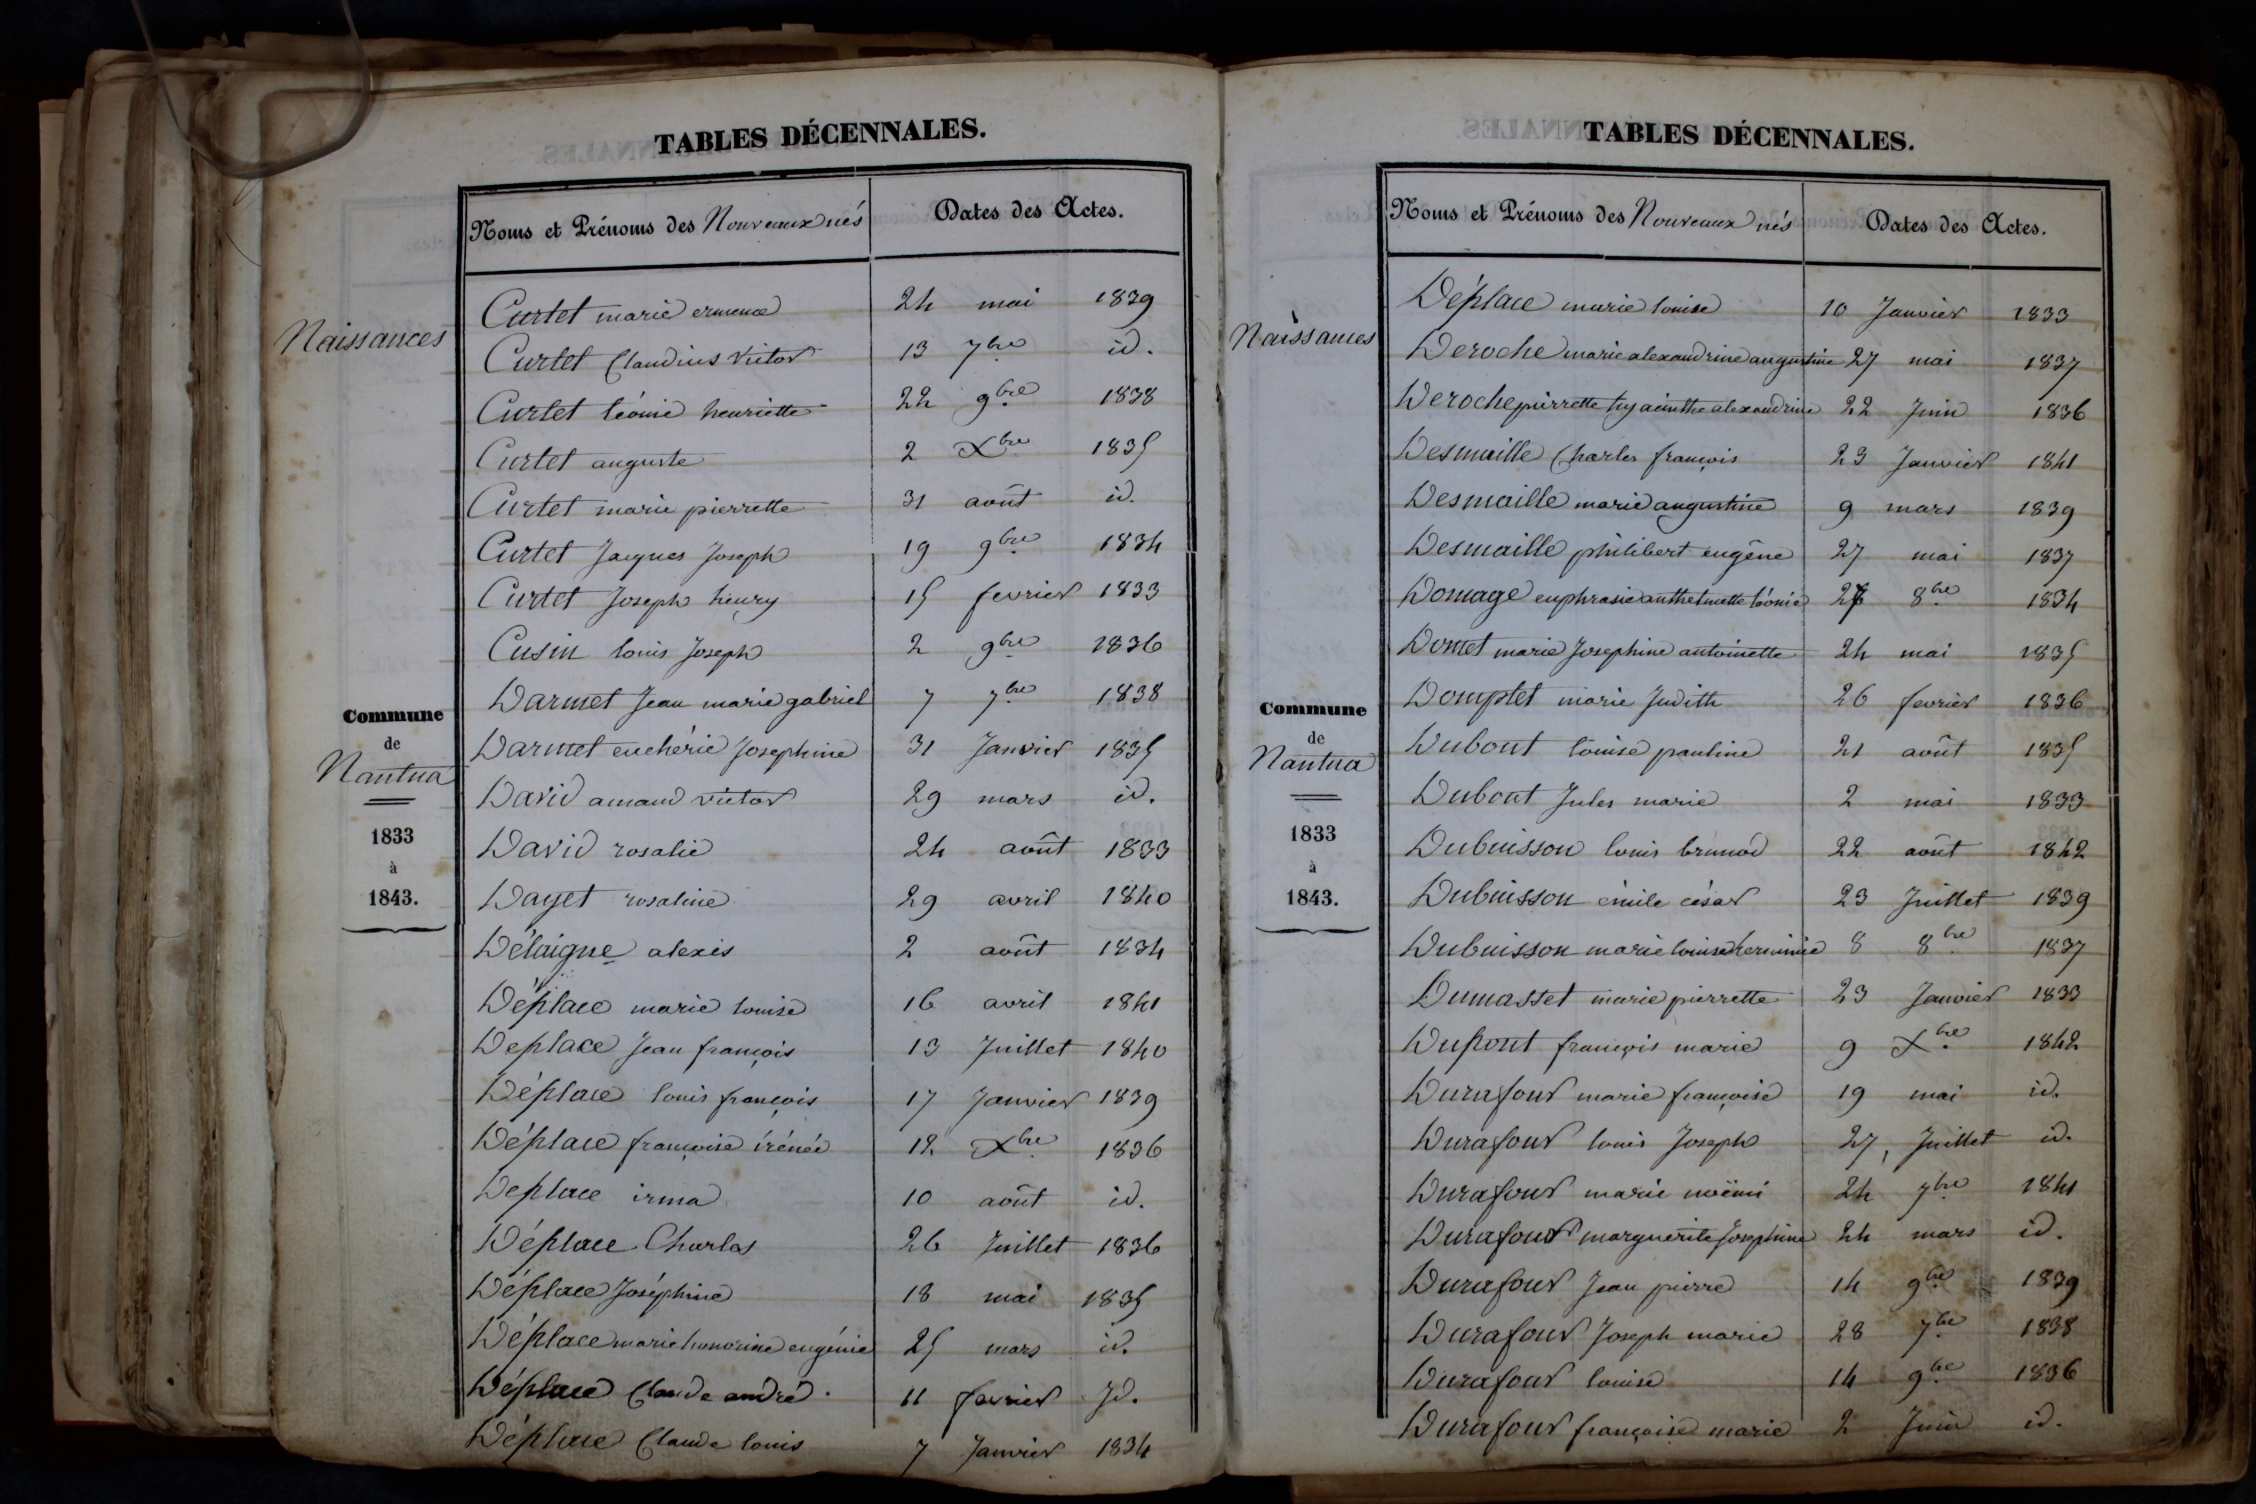 TABLES DÉCENNALES.
Noms et Prénoms des Nouveaux nés Dates des Actes.
Naissances
Commune
de
Nantua
1833
à
1843.
Curtet marie ermence 24 mai 1839
Curtet Claudius Victor 13 7bre id.
Curtet léonie henriette 22 9bre 1838
Curtet auguste 2 Xbre 1835
Curtet marie pierrette 31 août id.
Curtet Jacques Joseph 19 9bre 1834
Curtet Joseph henry 15 fevrier 1833
Cusin louis Joseph 2 9bre 1836
Darmet Jean marie gabriel 7 7bre 1838
Darmet euchérie Josephine 31 Janvier 1835
David amand victor 29 mars id.
David rosalie 24 août 1833
Dayet rosaline 29 avril 1840
Délaigue alexis 2 août 1834
Déplace marie louise 16 avril 1841
Deplace Jean françois 13 Juillet 1840
Déplace louis françois 17 Janvier 1839
Déplace françoise irénée 12 Xbre 1836
Deplace irma 10 août id.
Déplace Charles 26 Juillet 1836
Déplace Joséphine 18 mai 1835
Déplace marie honorine eugénie 25 mars id.
Déplace Claude andré. 11 fevrier Jd.
Déplace Claude louis 7 Janvier 1834
TABLES DÉCENNALES.
Noms et Prénoms des Nouveaux nés Dates des Actes.
Naissances
Commune
de
Nantua
1833
à
1843.
Déplace marie louise 10 Janvier 1833
Deroche marie alexandrine augustine 27 mai 1837
Deroche pierrette hyacinthe alexandrine 22 Juin 1836
Desmaille Charles françois 23 Janvier 1841
Desmaille marie augustine 9 mars 1839
Desmaille philibert eugêne 27 mai 1837
Domage euphrasie anthelmette léonie 27 8bre 1834
Domet marie Josephine antoinette 24 mai 1835
Domptet marie Judith 26 fevrier 1836
Dubout louise pauline 21 août 1835
Dubout Jules marie 2 mai 1833
Dubuisson louis brunod 22 août 1842
Dubuisson émile césar 23 Juillet 1839
Dubuisson marie louise herminie 8 8bre 1837
Dumasset marie pierrette 23 Janvier 1833
Dupont françois marie 9 Xbre 1842
Durafour marie françoise 19 mai id.
Durafour louis Joseph 27, Juillet id.
Durafour marie noëmi 24 7bre 1841
Durafour marguerite Josephine 24 mars id.
Durafour Jean pierre 14 9bre 1839
Durafour Joseph marie 28 7bre 1838
Durafour louise 14 9bre 1836
Durafour françoise marie 2 Juin id.